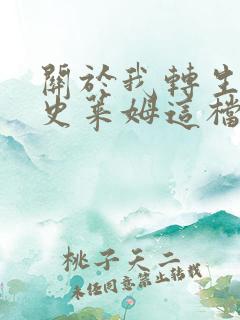 關於我轉生
史萊姆這檔
桃子天二
未經同意禁止轉載